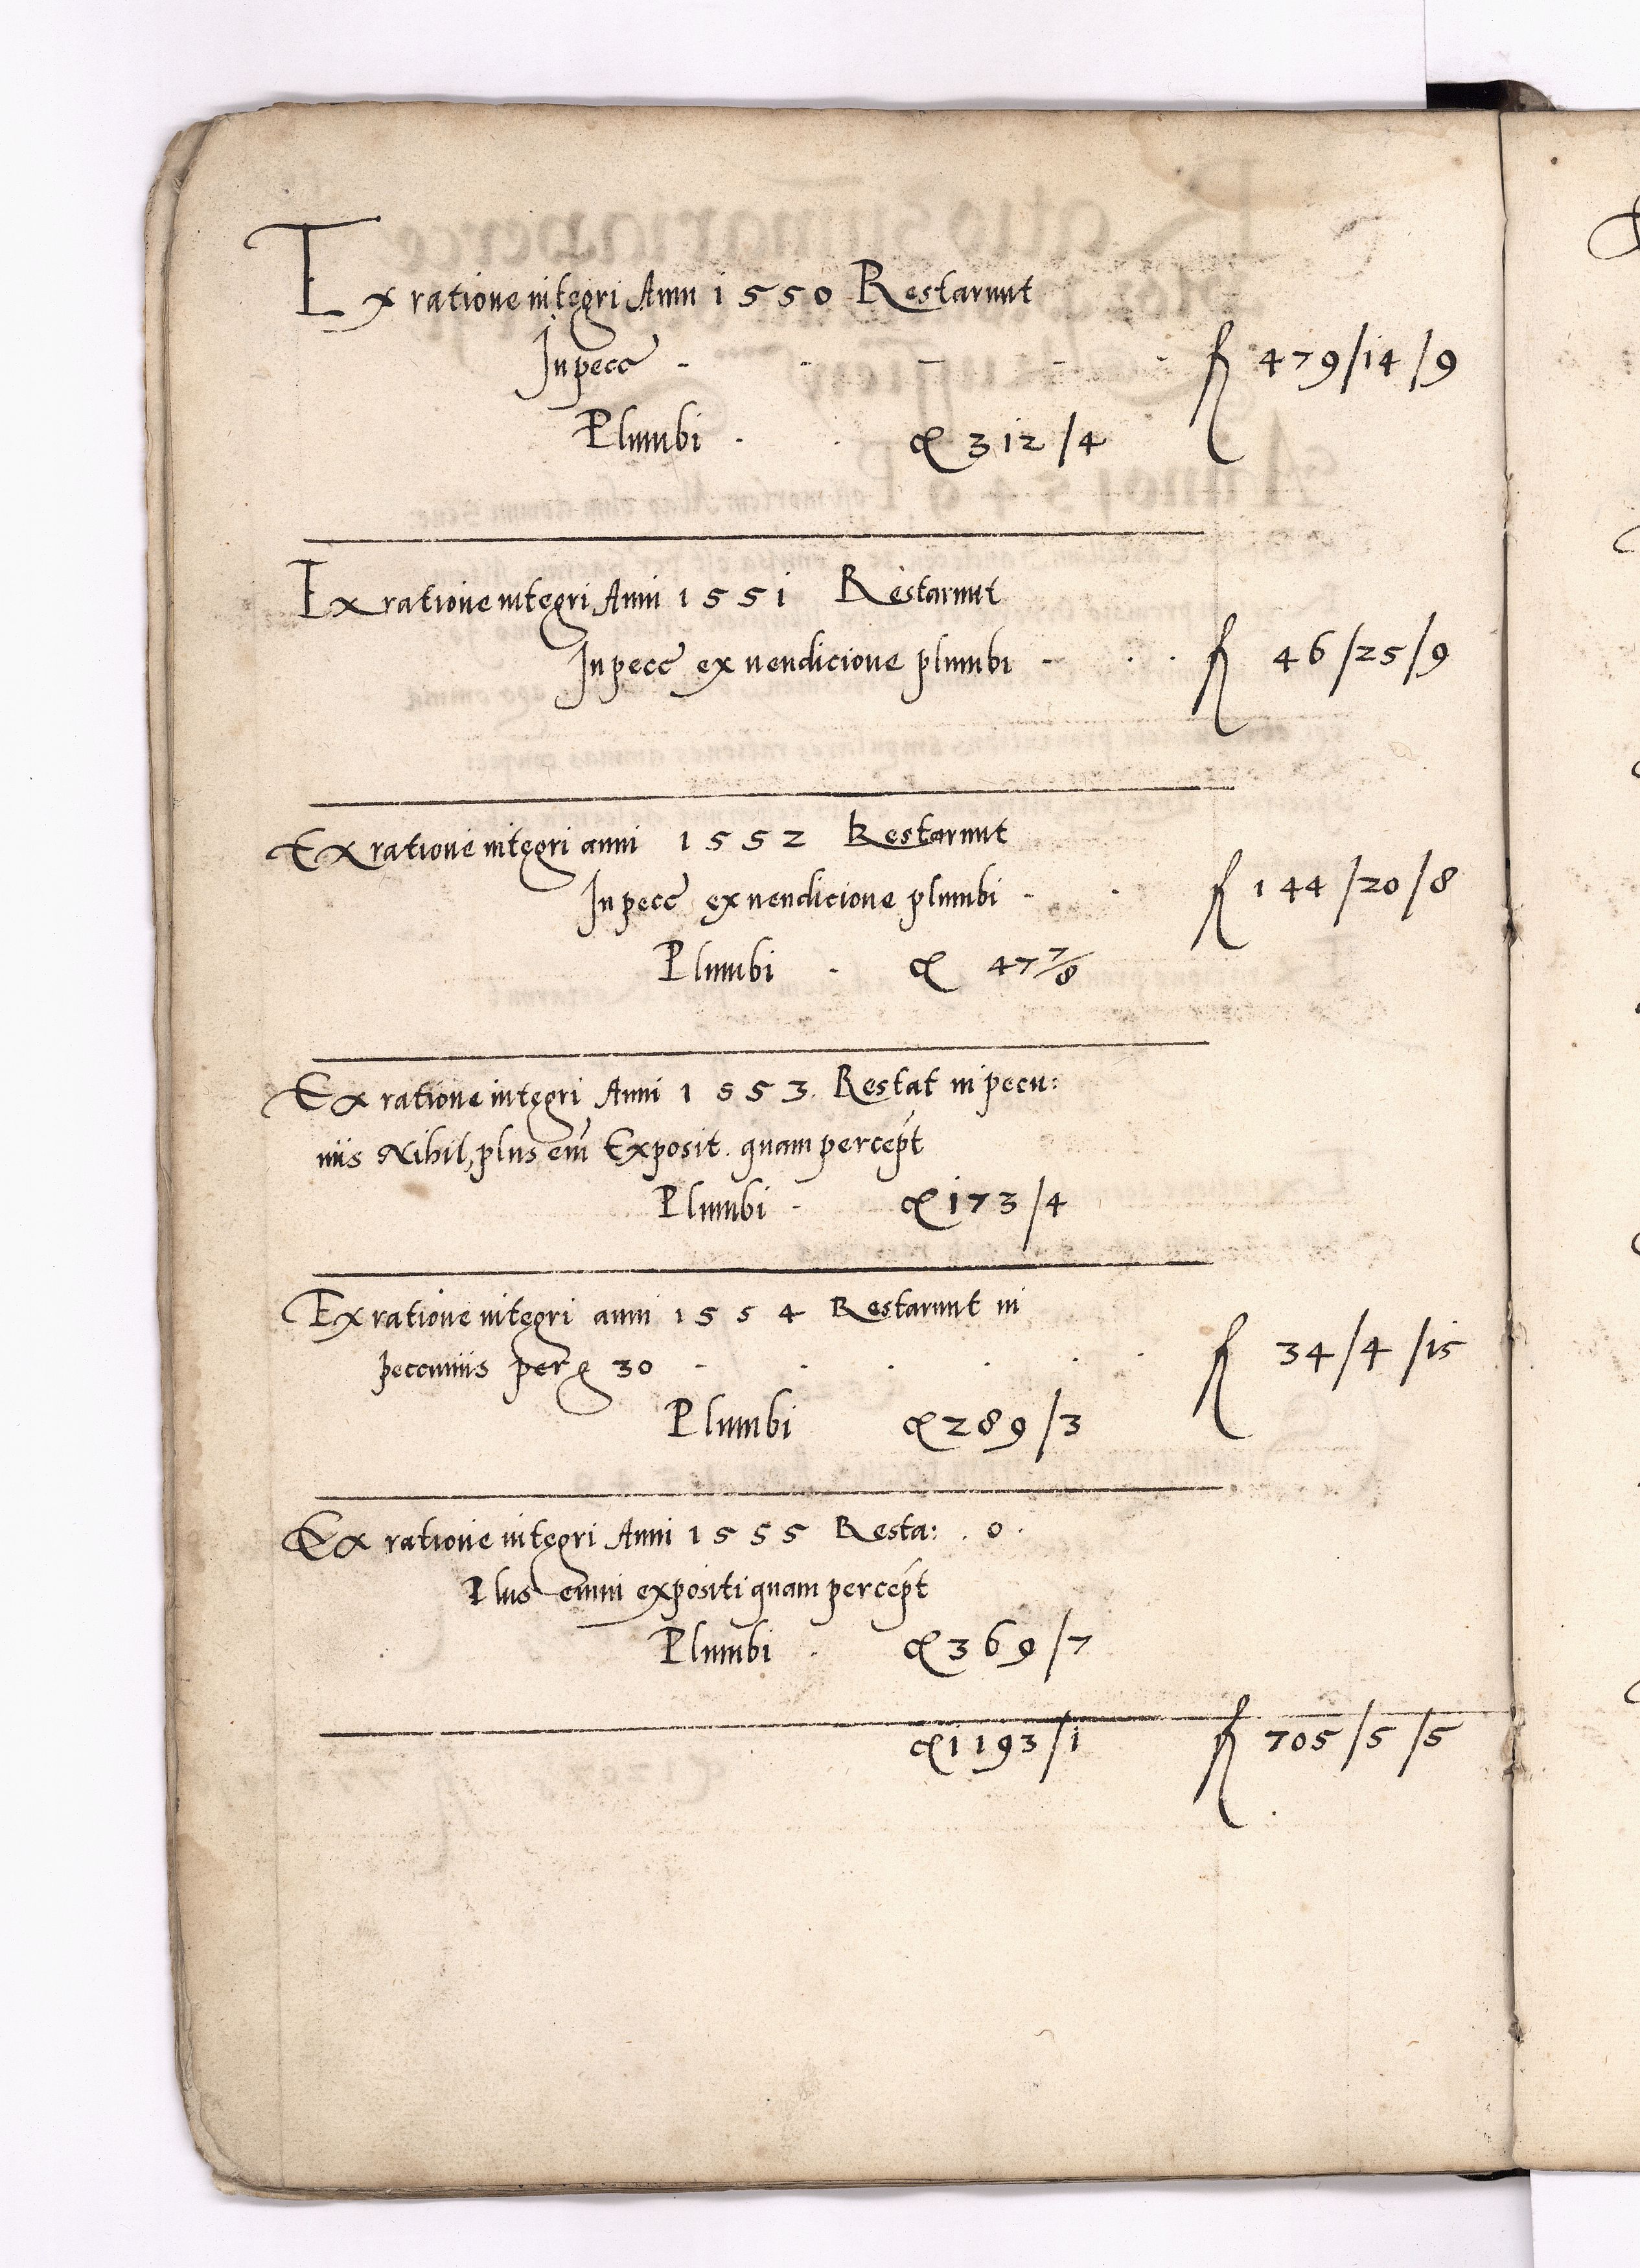 Ex ratione integri Anni 1550 Restarunt
In pecc - - - - - fl 479/14/9
Plumbi . . ct 312/4
Ex ratione integri Anni 1551 Restarunt
In pecc ex vendicione plumbi - . . fl 46/25/9
Ex ratione integri anni 1552 Restarunt
In pecc ex vendicione plumbi - . fl 144/20/8
Plumbi . ct 47 7/8
Ex ratione integri Anni 1553. Restat in pecu:
niis Nihil, plus em̃ Exposit. quam percept
Plumbi - ct 173/4
Ex ratione integri anni 1554 Restarunt in
peccuniis per g 30 - . . . . . fl 34/4/15
Plumbi ct 289/3
Ex ratione integri Anni 1555 Resta: . 0 .
Plus enim expositi quam percept
Plumbi . ct 369/7
ct 1193/1 fl 705/5/5